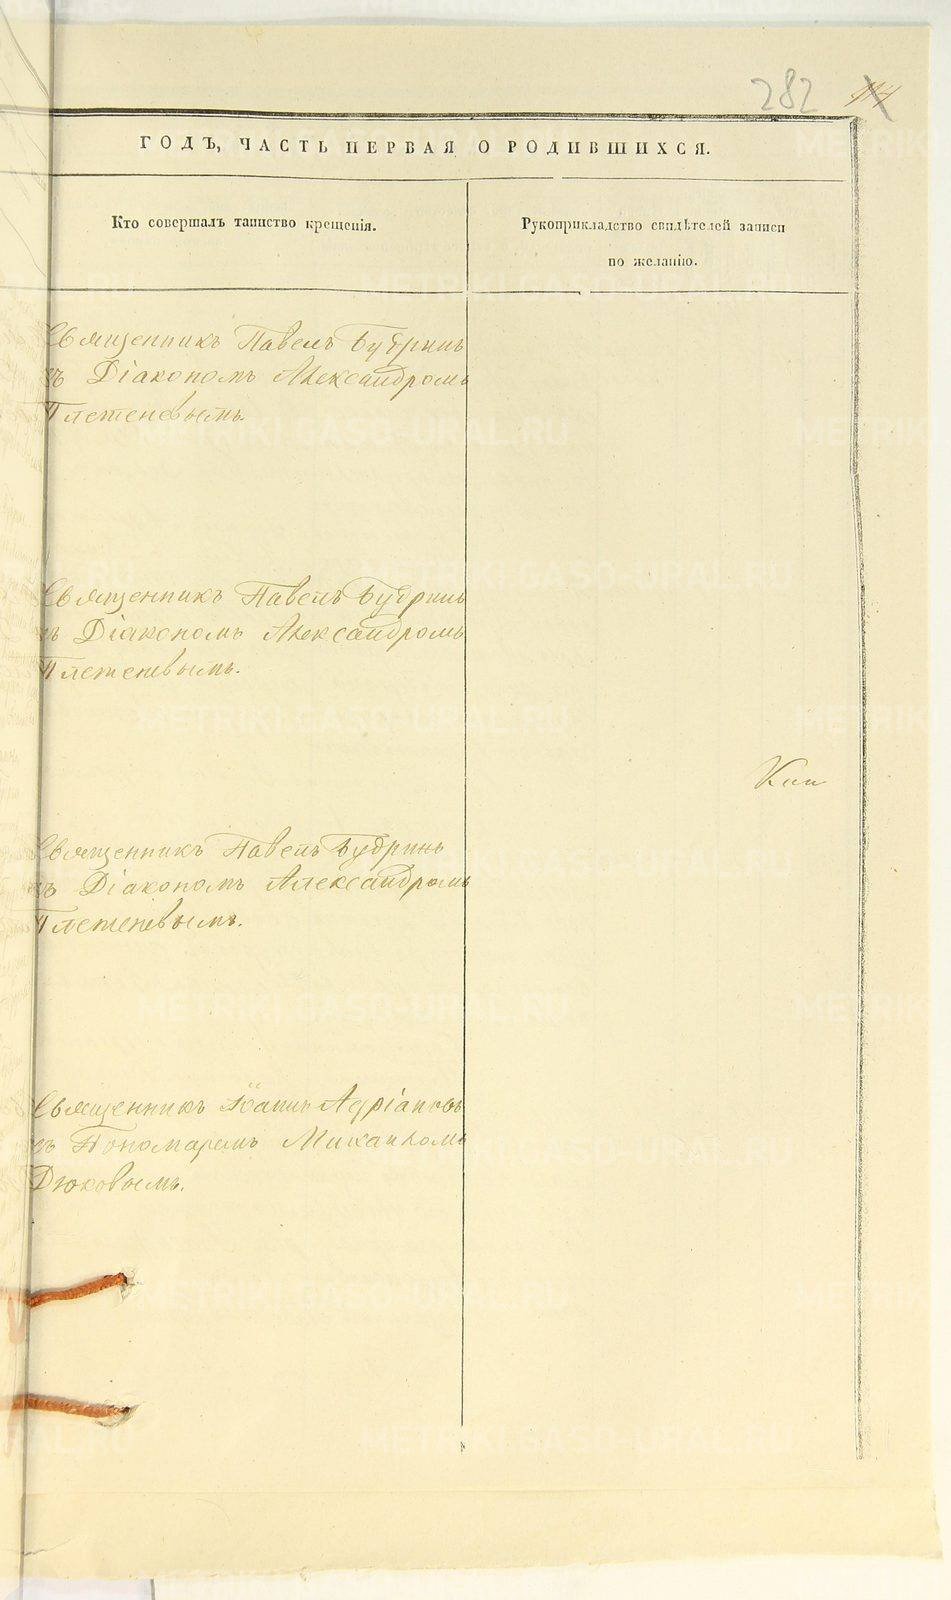 282 114
ГОДЪ, ЧАСТЬ ПЕРВАЯ О РОДИВШИХСЯ.
Кто совершалъ таинство крещенія.
Рукоприкладство свидѣтелей записи
по желанію.
Священникъ Павелъ Будринъ
съ Діакономъ Александромъ
Плетеневымъ.
Священникъ Павелъ Будринъ
съ Діакономъ Александромъ
Плетеневымъ.
Священникъ Павелъ Будринъ
съ Діакономъ Александромъ
Плетеневымъ.
Священникъ Іоаннъ Адріановъ
съ Пономаремъ Михаиломъ
Дюковымъ.
METRIKI.GASO-URAL.RU